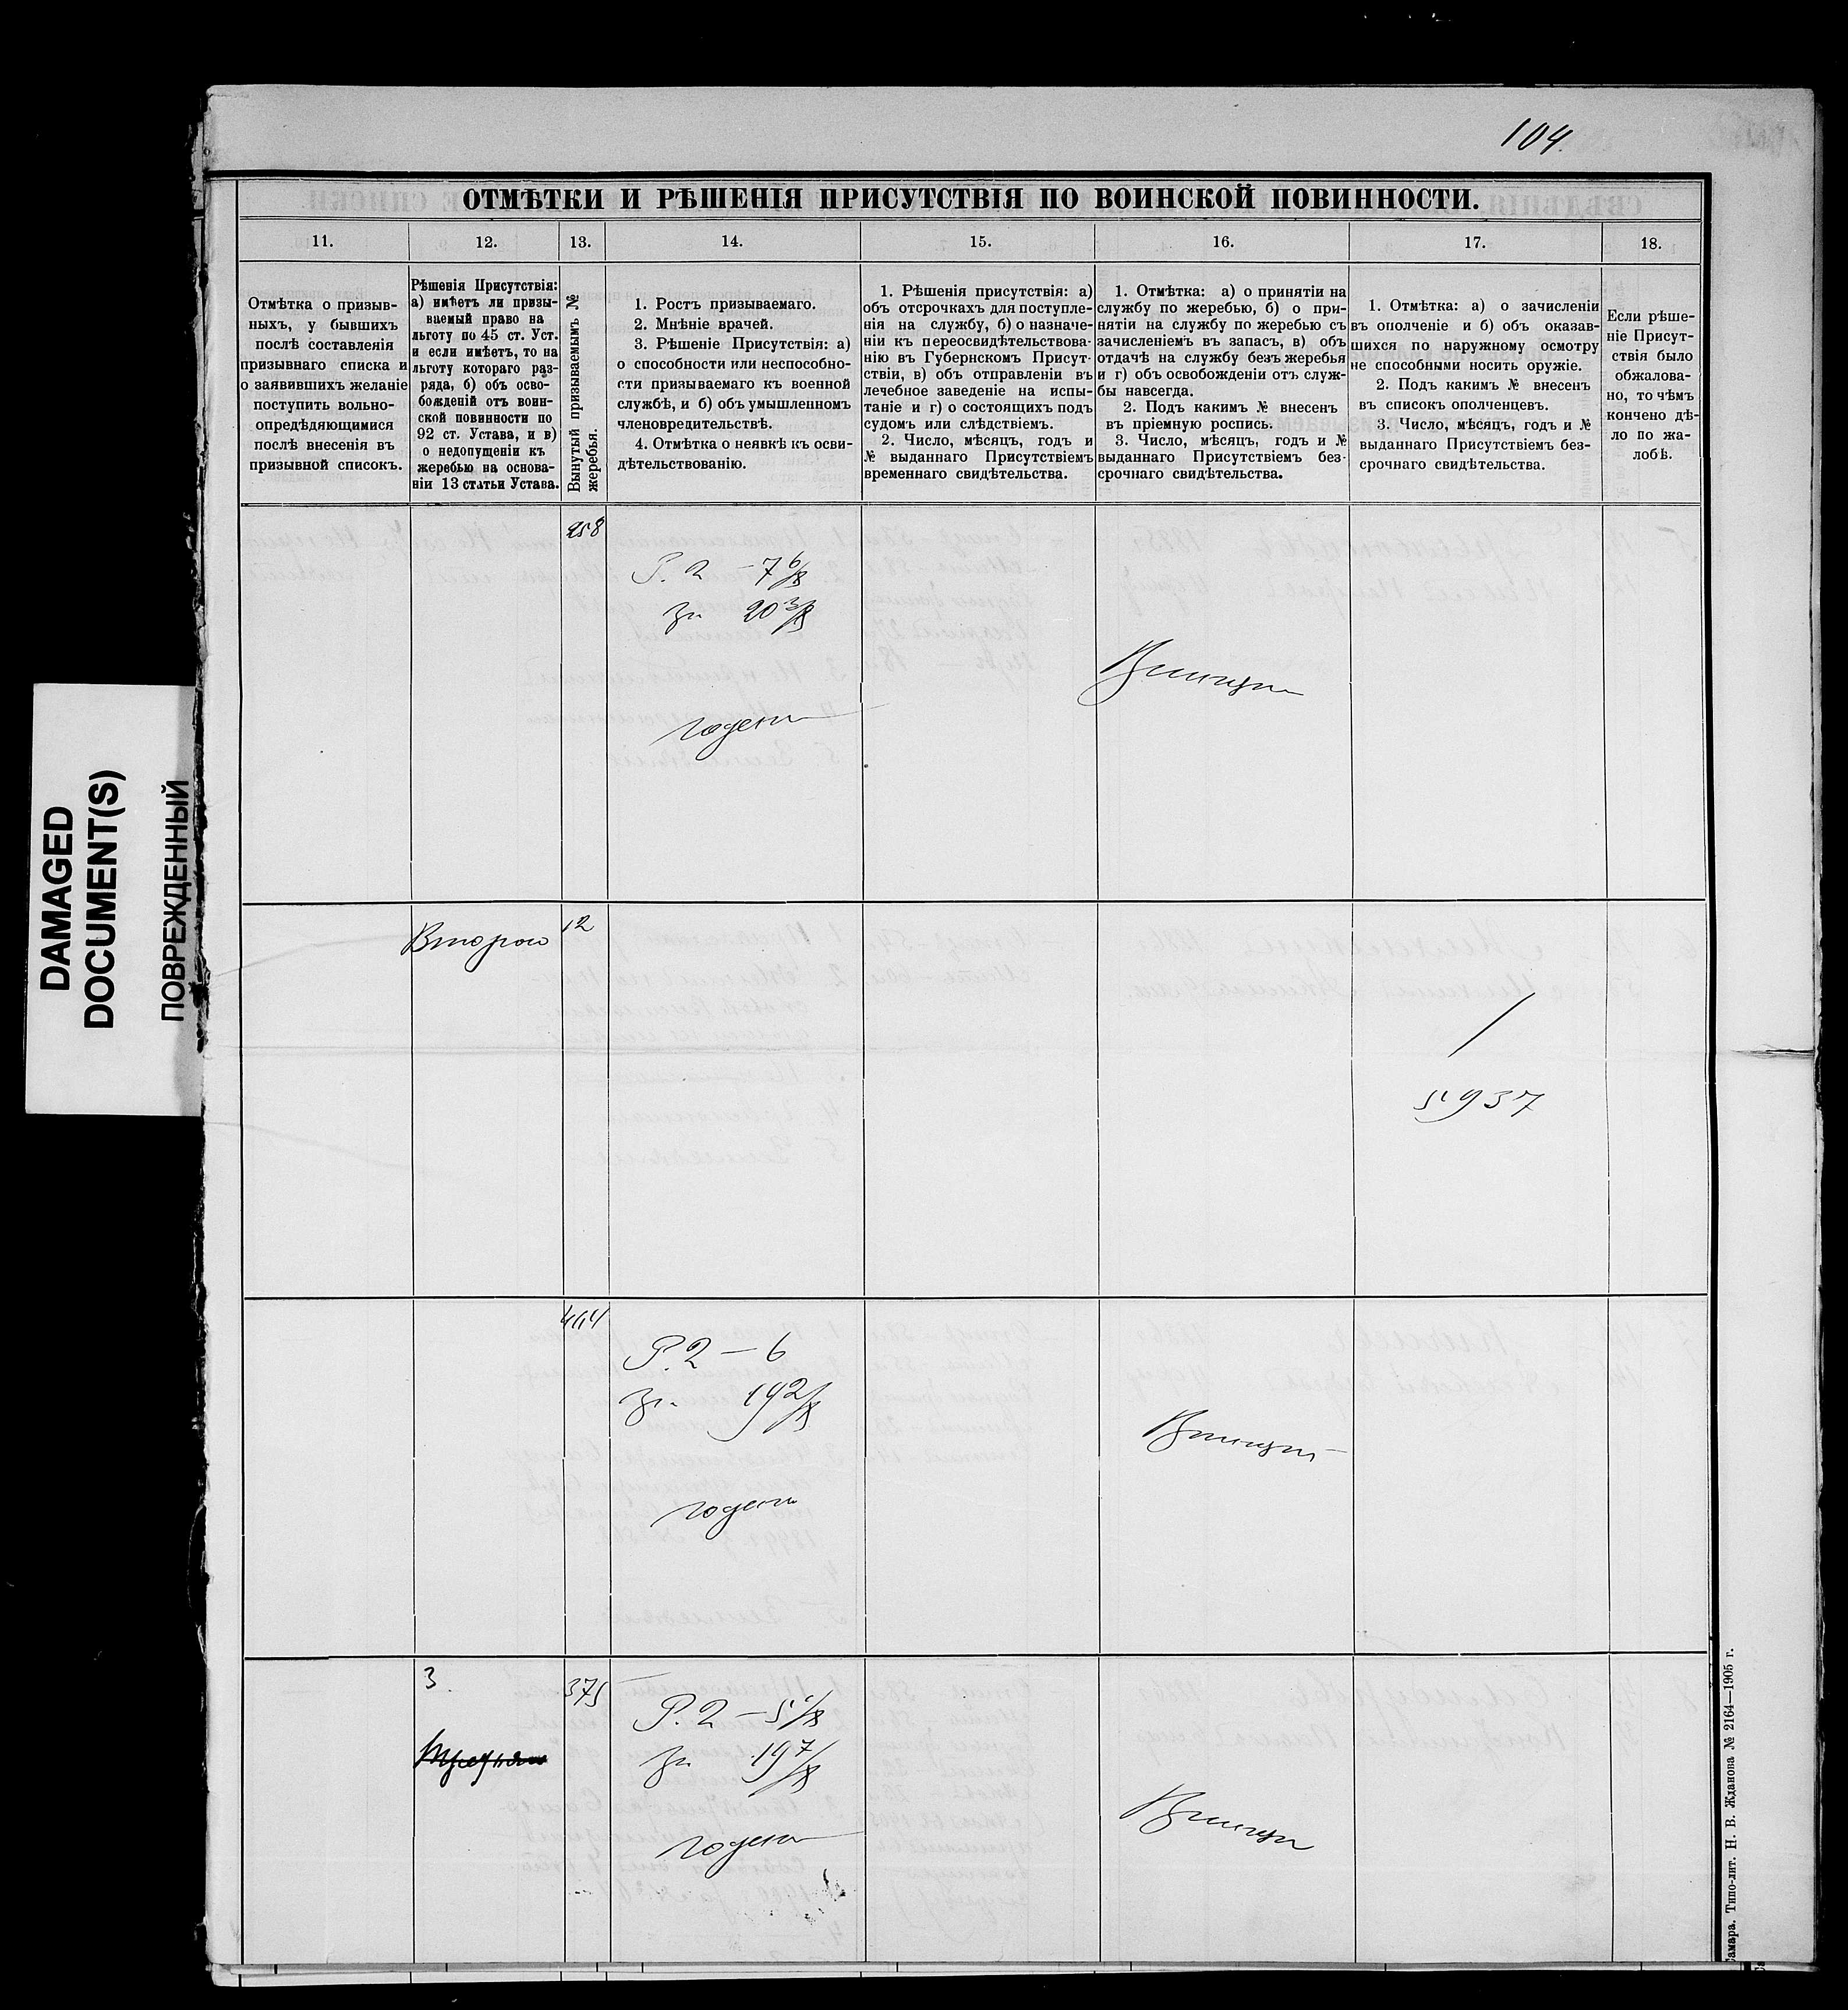 104.
ОТМѢТКИ И РѢШЕНІЯ ПРИСУТСТВІЯ ПО ВОИНСКОЙ ПОВИННОСТИ.
11. 12. 13. 14. 15. 16. 17. 18.
Отмѣтка о призыв-
ныхъ, у бывшихъ
послѣ составленія
призывнаго списка и
о заявившихъ желаніе
поступить вольно-
опредѣляющимися
послѣ внесенія въ
призывной списокъ.
Рѣшенія Присутствія:
а) имѣетъ ли призы-
ваемый право на
льготу по 45 ст. Уст.
и если имѣетъ, то на
льготу котораго раз-
ряда, б) объ осво-
божденій отъ воин-
ской повинности по
92 ст. Устава, и в)
о недопущеніи къ
жеребью на основа-
ніи 13 статьи Устава.
Вынутый призываемымъ №
жеребья.
1. Ростъ призываемаго.
2. Мнѣніе врачей.
3. Рѣшеніе Присутствія: а)
о способности или неспособно-
сти призываемаго къ военной
службѣ, и б) объ умышленномъ
членовредительствѣ.
4. Отмѣтка о неявкѣ къ осви-
дѣтельствованію.
1. Рѣшенія присутствія: а)
объ отсрочкахъ для поступле-
нія на службу, б) о назначе-
ніи къ переосвидѣтельствова-
нію въ Губернскомъ Присут-
ствіи, в) объ отправленіи въ
лечебное заведеніе на испы-
таніе и г) о состоящихъ подъ
судомъ или слѣдствіемъ.
2. Число, мѣсяцъ, годъ и
№ выданнаго Присутствіемъ
временнаго свидѣтельства.
1. Отмѣтка: а) о принятіи на
службу по жеребью, б) о при-
нятіи на службу по жеребью съ
зачисленіемъ въ запасъ, в) объ
отдачѣ на службу безъ жеребья
и г) объ освобожденіи отъ служ-
бы навсегда.
2. Подъ какимъ № внесенъ
въ пріемную роспись.
3. Число, мѣсяцъ, годъ и №
выданнаго Присутствіемъ без-
срочнаго свидѣтельства.
1. Отмѣтка: а) о зачисленіи
въ ополченіе и б) объ оказав-
шихся по наружному осмотру
не способными носить оружіе.
2. Подъ какимъ № внесенъ
въ списокъ ополченцевъ.
3. Число, мѣсяцъ, годъ и №
выданнаго Присутствіемъ без-
срочнаго свидѣтельства.
Если рѣше-
ніе Присут-
ствія было
обжалова-
но, то чѣмъ
кончено дѣ-
ло по жа-
лобѣ.
258
Р. 2 – 7 6/8
20 3/8
годенъ
Второй
12
5937
Р. 2 – 6
19 2/8
годенъ
3.
375
Р. 2 – 5 /8
19 7/8
годенъ
DAMAGED
DOCUMENT(S)
ПОВРЕЖДЕННЫЙ
Самара. Типо-лит. Н. В. Жданова № 2164—1905 г.